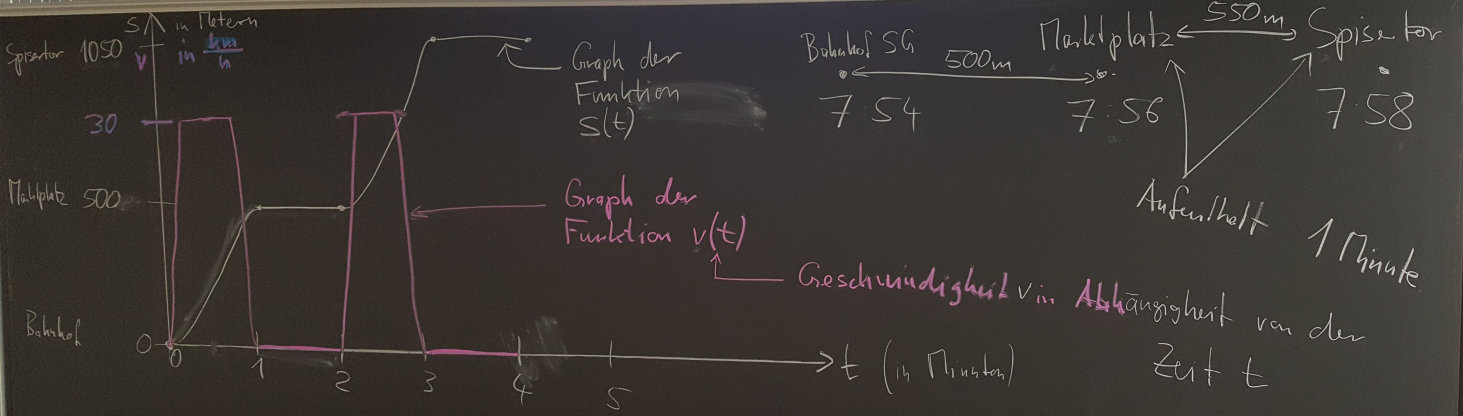 S in Metern
Spisertor 1050
v in km/h
30
Marktplatz 500
Bahnhof
0
0 1 2 3 4 5
t (in Minuten)
Graph der
Funktion
S(t)
Graph der
Funktion v(t)
Geschwindigkeit v in Abhängigkeit von der
Zeit t
Bahnhof SG 500m Marktplatz 550m Spisertor
7:54 7:56 7:58
Aufenthalt 1 Minute